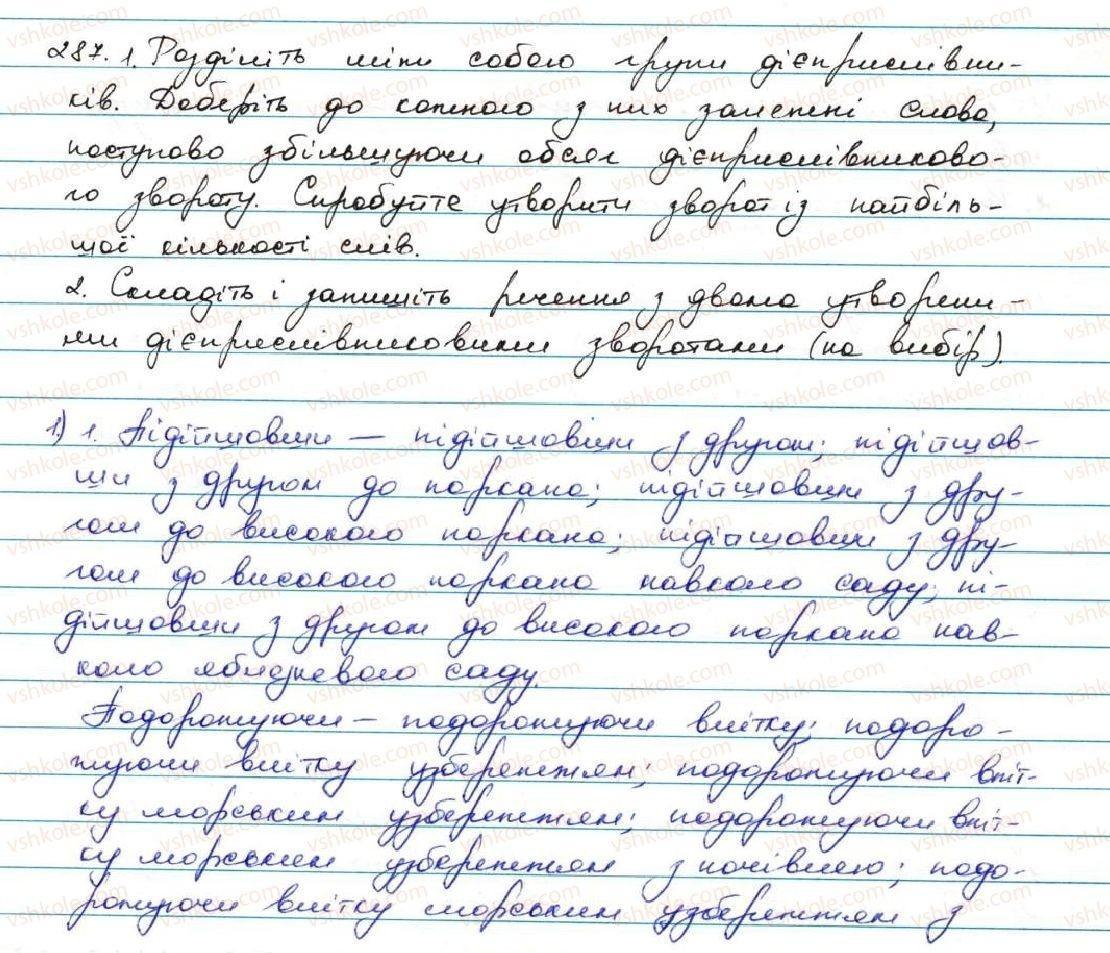 287. 1. Розділіть між собою групи дієприслівни-
ків. Доберіть до кожного з них залежні слова,
поступово збільшуючи обсяг дієприслівниково-
го звороту. Спробуйте утворити зворот із найбіль-
шої кількості слів.
2. Складіть і запишіть речення з двома утворени-
ми дієприслівниковими зворотами (на вибір).
1) 1. Підійшовши — підійшовши з другом; підійшов-
ши з другом до паркана; підійшовши з дру-
гом до високого паркана; підійшовши з дру-
гом до високого паркана навколо саду; пі-
дійшовши з другом до високого паркана нав-
коло яблуневого саду.
Подорожуючи — подорожуючи влітку; подоро-
жуючи влітку узбережжям; подорожуючи вліт-
ку морським узбережжям; подорожуючи вліт-
ку морським узбережжям з ночівлею; подо-
рожуючи влітку морським узбережжям з